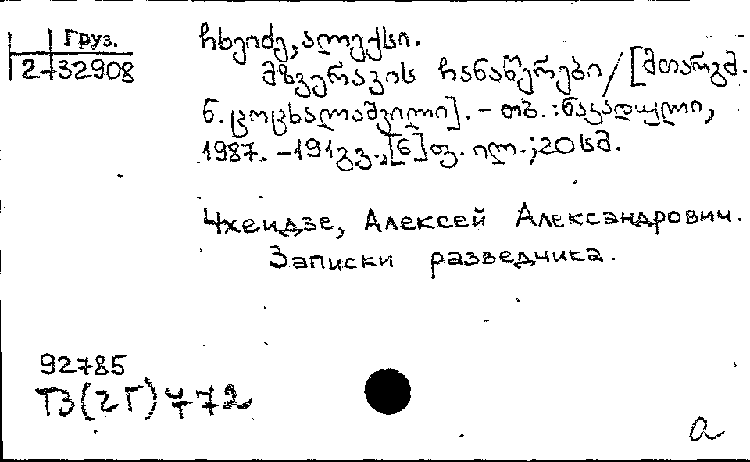 Груз.
2-32908
ჩხეიძე, ალექსი.
მზვერავის ჩანაწერები / [მთარგმ.
ნ. ცოცხალაშვილი]. - თბ. : ნაკადული,
1987. - 191 გვ., [6] ფ. ილ. ; 20 სმ.
Чхеидзе, Алексей Александрович.
Записки разведчика.
92785
Т3(2Г) Ч72
а